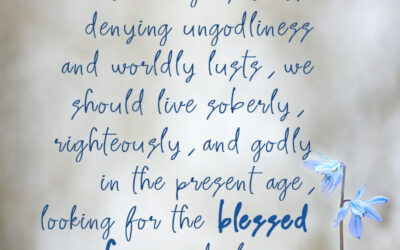 denying ungodliness
and worldly lusts, we
should live soberly,
righteously, and godly
in the present age,
looking for the blessed